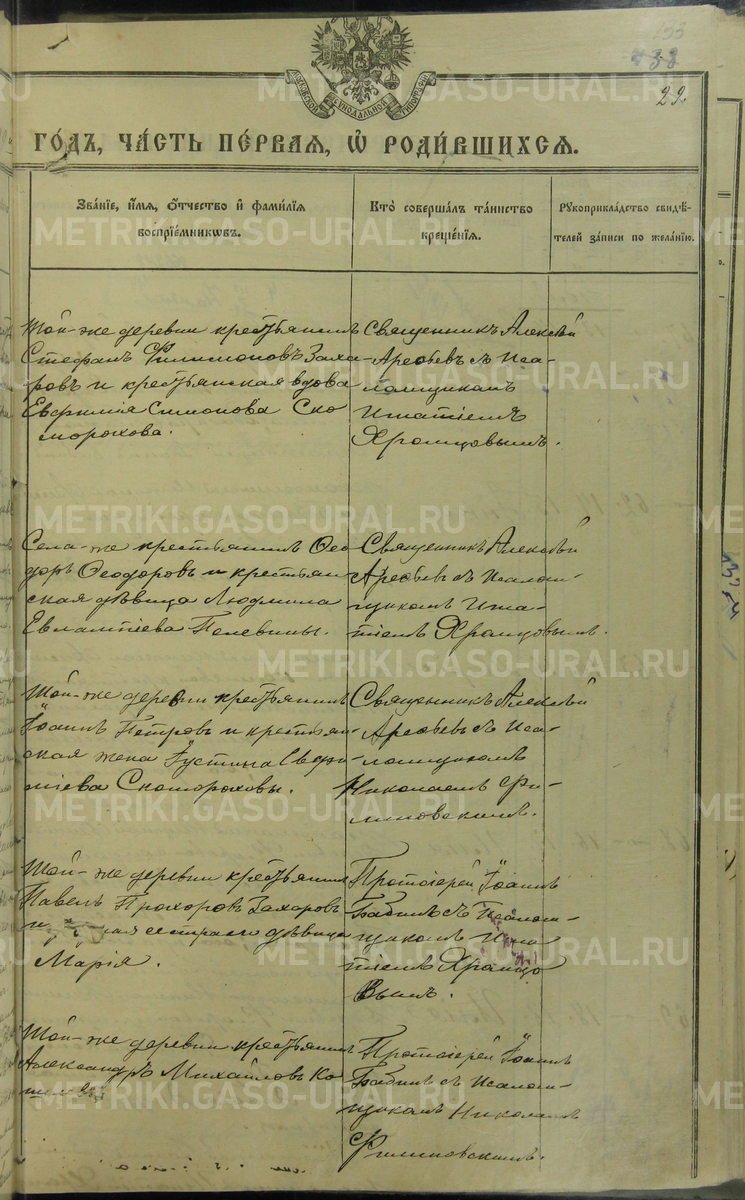 133
133
22.
МОСКОВСКОЙ СѴНОДАЛЬНОЙ ТИПОГРАФІИ
ГОДЪ, ЧАСТЬ ПЕРВАЯ, Ѡ РОДИВШИХСЯ.
Званіе, имя, отчество и фамилія
воспріемниковъ.
Кто совершалъ таинство
крещенія.
Рукоприкладство свидѣ-
телей записи по желанію.
Той-же деревни крестьянинъ
Стефанъ Филимоновъ Заха-
ровъ и крестьянская вдова
Евфимія Симонова Ско
морохова.
Священникъ Алексѣй
Арефьевъ съ Псa-
ломщикомъ
Игнатіемъ
Храмцовымъ.
Села-же крестьянинъ Ѳео
доръ Ѳеодоровъ и крестьян
ская дѣвица Людмила
Евлампіева Пелевины.
Священникъ Алексѣй
Арефьевъ съ Псалом-
щикомъ Игна-
тіемъ Храмцовымъ.
Той-же деревни крестьянинъ
Іоаннъ Петровъ и крестьян-
ская жена Іустина
Скомороховы.
Священникъ Алексѣй
Арефьевъ съ Пса-
ломщикомъ
Николаемъ Фи-
липповскимъ.
Той-же деревни крестьянинъ
Павелъ Прохоровъ Захаровъ
и сестра его дѣвица
Марія.
Протоіерей Іоаннъ
Бабинъ съ Псалом-
щикомъ Игна
тіемъ Храмцо
вымъ.
Той-же деревни крестьянинъ
Александръ Михайловъ Ко
Протоіерей Іоаннъ
Бабинъ съ Псалом-
щикомъ Николаемъ
Филипповскимъ.
METRIKI.GASO-URAL.RU